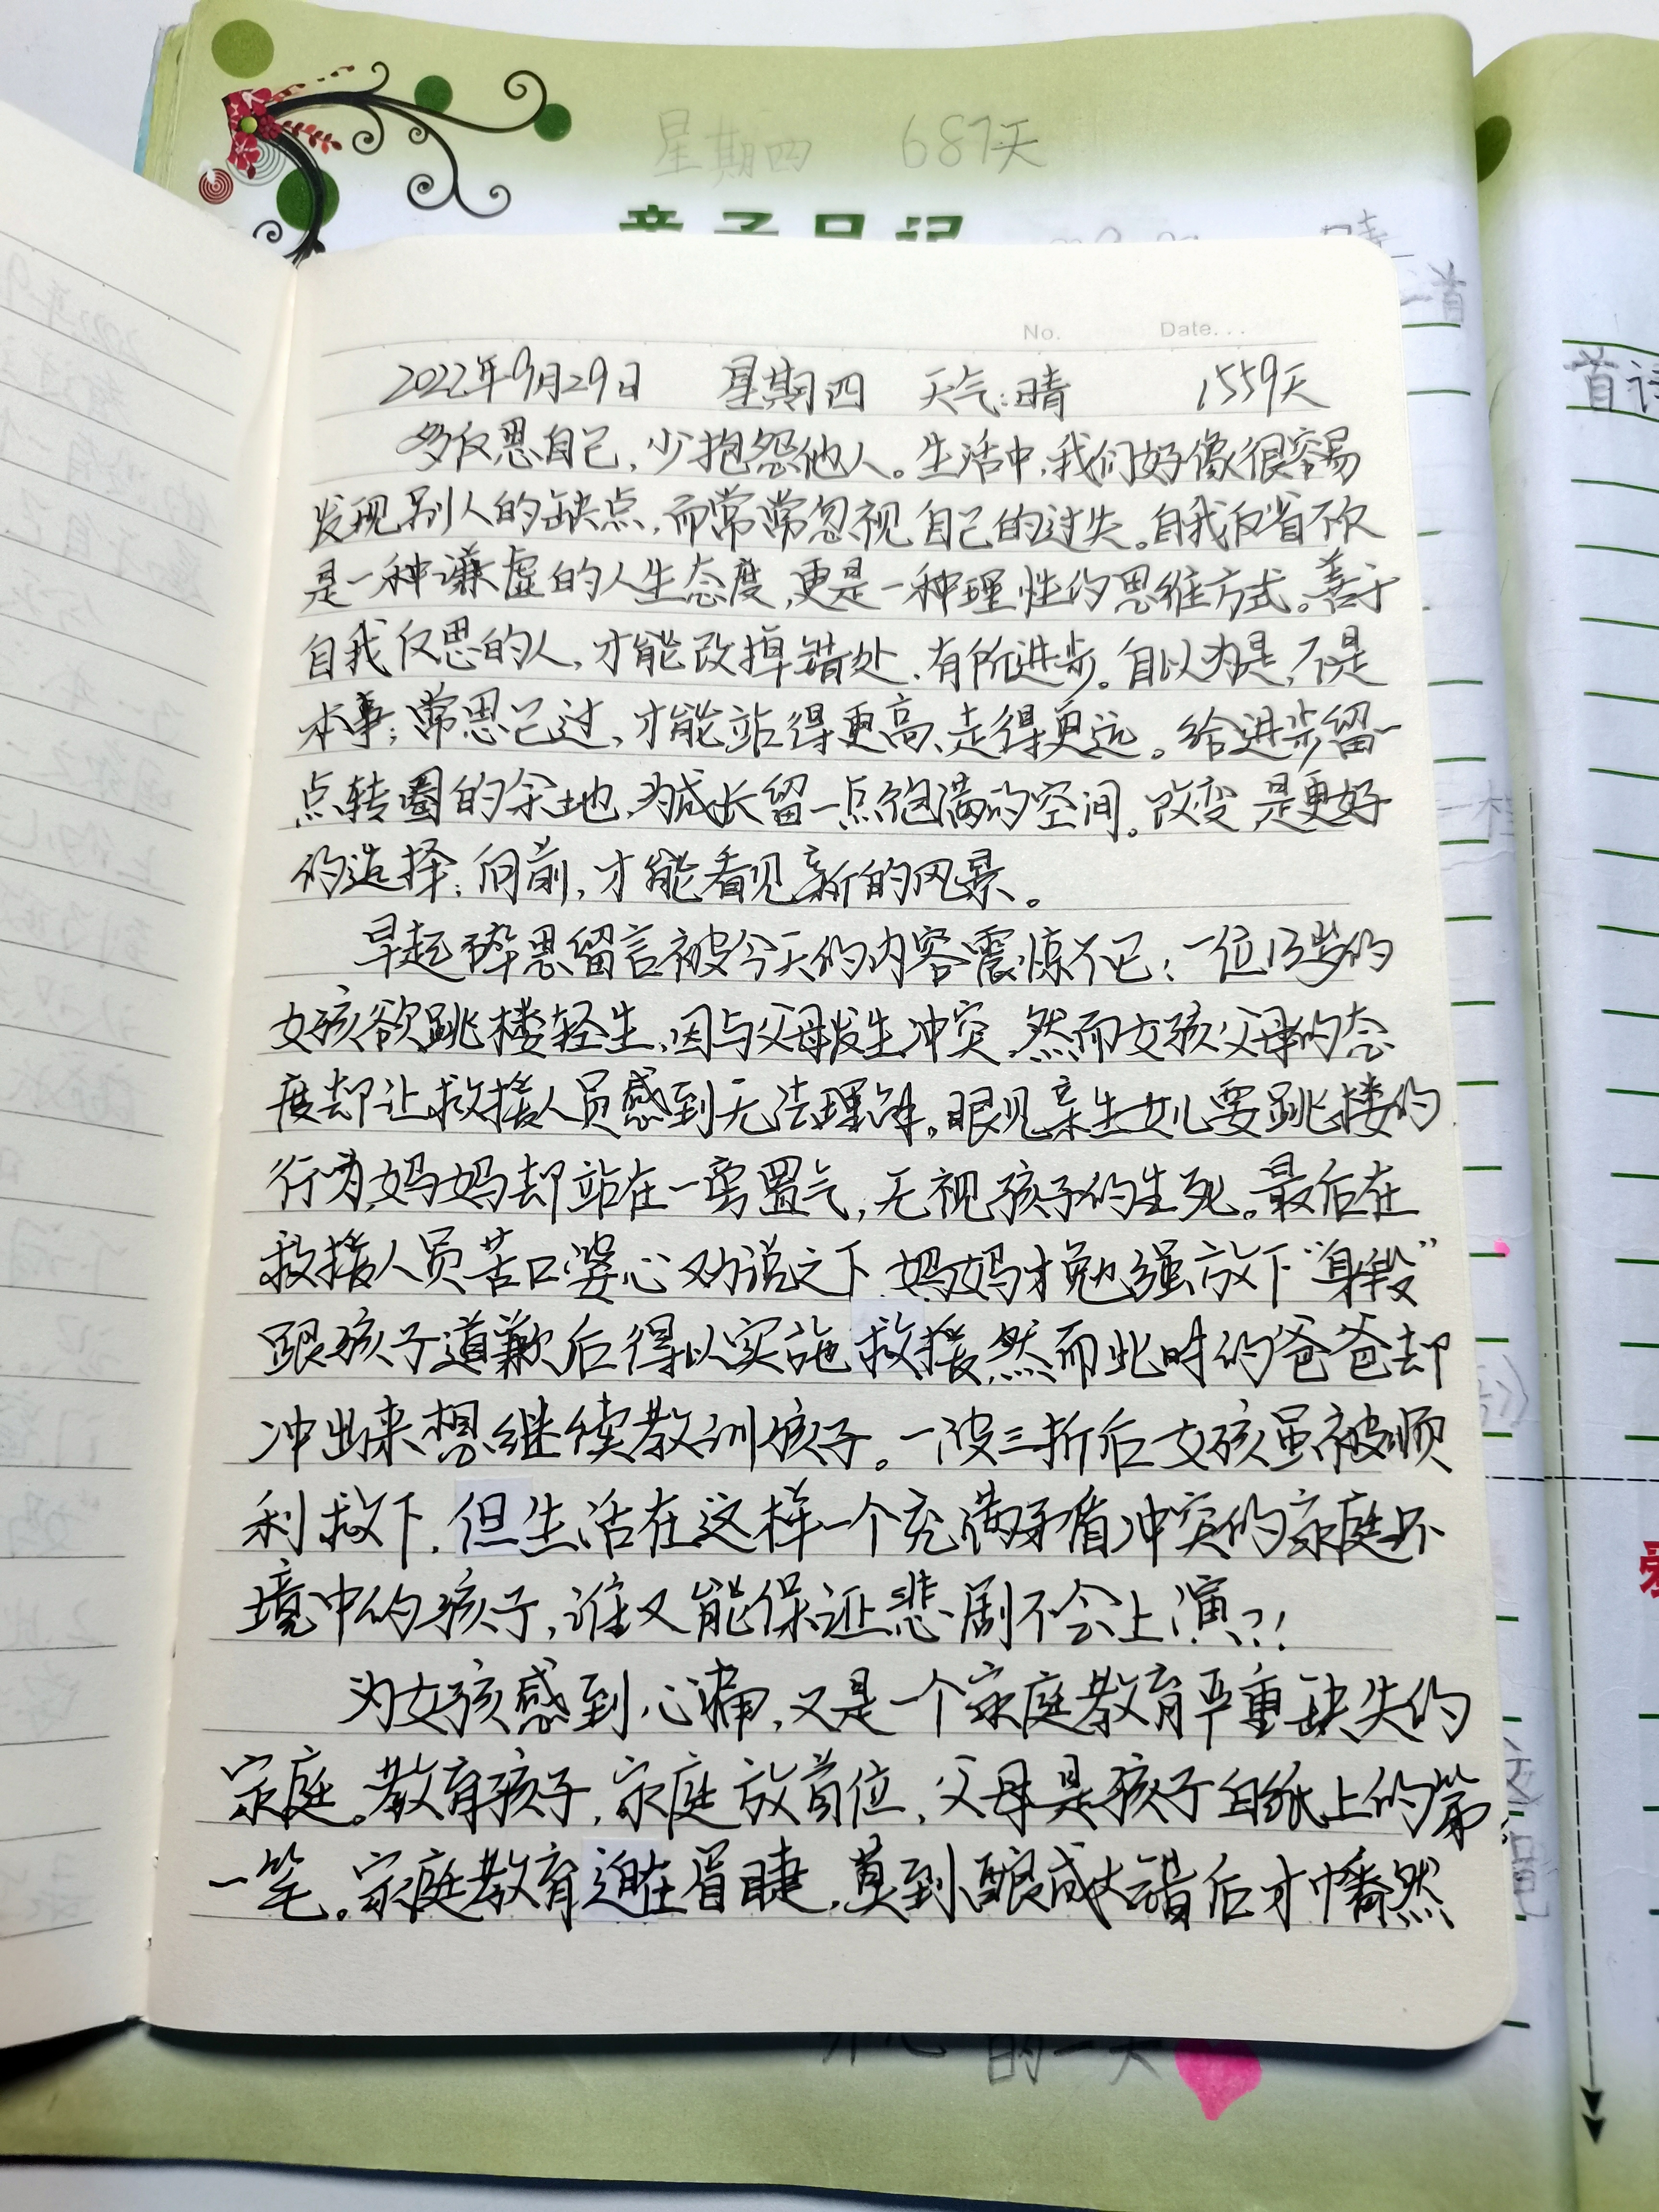 星期四 687天
亲子日记
晴
No. Date...
2022年9月29日 星期四 天气:晴 1559天
多反思自己,少抱怨他人。生活中,我们好像很容易
发现别人的缺点,而常常忽视自己的过失。自我反省不仅
是一种谦虚的人生态度,更是一种理性的思维方式。善于
自我反思的人,才能改掉错处、有所进步。自以为是,不是
本事;常思己过,才能站得更高、走得更远。给进步留一
点转圜的余地,为成长留一点饱满的空间。改变,是更好
的选择;向前,才能看见新的风景。
早起碎思留言被今天的内容震惊不已:一位13岁的
女孩欲跳楼轻生,因与父母发生冲突,然而女孩父母的态
度却让救援人员感到无法理解。眼见亲生女儿要跳楼的
行为,妈妈却站在一旁置气,无视孩子的生死。最后在
救援人员苦口婆心劝说之下,妈妈才勉强放下“身段”
跟孩子道歉后得以实施救援,然而此时的爸爸却
冲出来想继续教训孩子。一波三折后女孩虽被顺
利救下,但生活在这样一个充满矛盾冲突的家庭环
境中的孩子,谁又能保证悲剧不会上演?!
为女孩感到心痛,又是一个家庭教育严重缺失的
家庭。教育孩子,家庭放首位,父母是孩子白纸上的第
一笔。家庭教育迫在眉睫,莫到酿成大错后才幡然
开心的一天